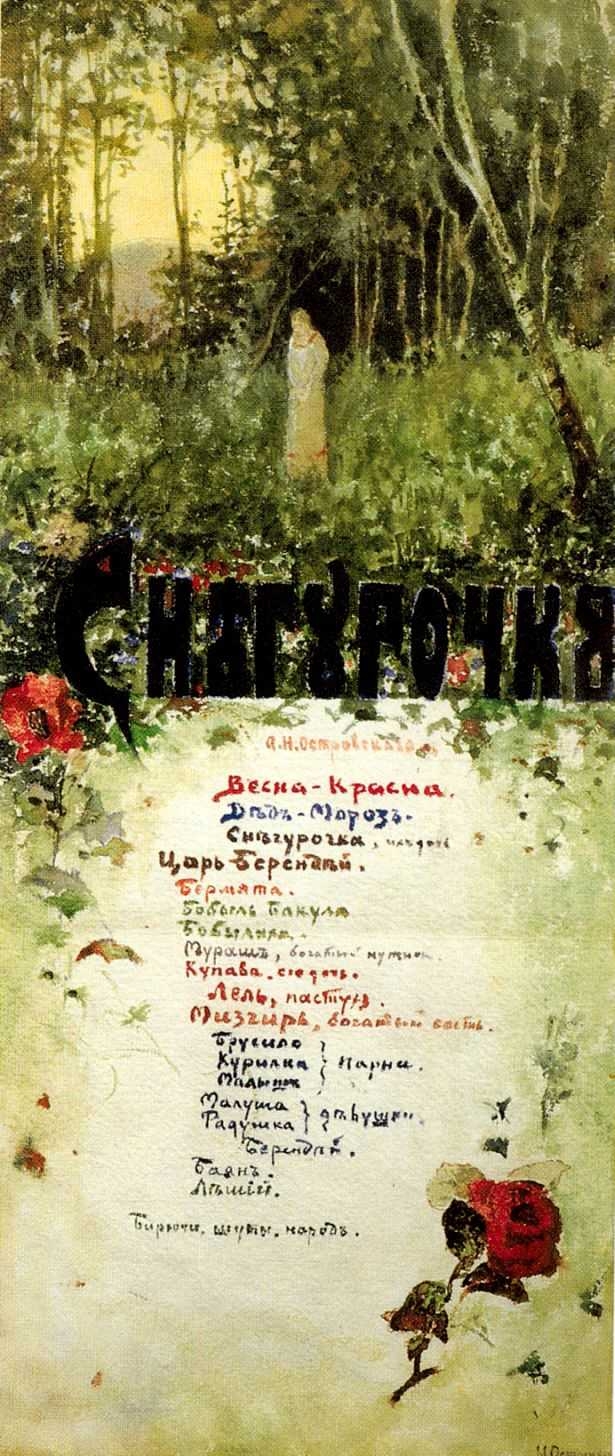 Снѣгурочка
А.Н.Островскаго
Весна-Красна.
Дѣдъ-Морозъ.
Снѣгурочка, ихъ дочь
Царь Берендѣй.
Бермята.
Бобыль Бакула
Бобылиха.
Мурашъ, богатый мужик.
Купава. его дочь.
Лель, пастухъ.
Мизгирь, богатый гость.
Брусило
Курилка } парни.
Малышъ
Малуша
Радушка } дѣвушки.
Берендѣй.
Баянъ.
Лѣшій.
Бирючи, шуты, народъ.